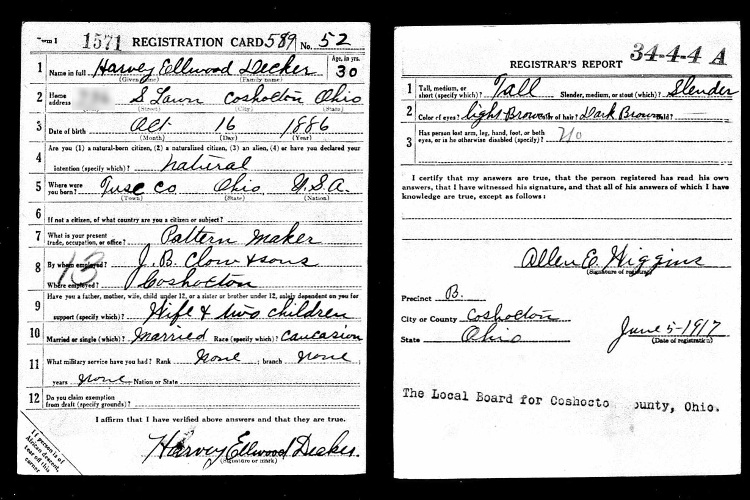 Form 1 1571 REGISTRATION CARD 589 No. 52
1 Name in full Harvey Ellwood Decker Age, in yrs. 30
(Given name) (Family name)
2 Home address S Lawn Coshocton Ohio
(Street) (City) (State)
3 Date of birth Oct 16 1886
(Month) (Day) (Year)
4 Are you (1) a natural-born citizen, (2) a naturalized citizen, (3) an alien, (4) or have you declared your
intention (specify which)? natural
5 Where were you born? Tusc Co Ohio U.S.A.
(Town) (State) (Nation)
6 If not a citizen, of what country are you a citizen or subject?
7 What is your present trade, occupation, or office? Pattern Maker
8 By whom employed? J. B. Clow & sons
13
Where employed? Coshocton
9 Have you a father, mother, wife, child under 12, or a sister or brother under 12, solely dependent on you for
support (specify which)? Wife & two children
10 Married or single (which)? Married Race (specify which)? Caucasion
11 What military service have you had? Rank None ; branch none ;
years none Nation or State
12 Do you claim exemption from draft (specify grounds)?
I affirm that I have verified above answers and that they are true.
Harvey Ellwood Decker.
(Signature or mark)
If person is of
African descent,
tear off this
corner
34-4-4 A
REGISTRAR'S REPORT
1 Tall, medium, or short (specify which)? Tall Slender, medium, or stout (which)? Slender
2 Color of eyes? light Brown of hair? Dark Brown
3 Has person lost arm, leg, hand, foot, or both
eyes, or is he otherwise disabled (specify)? No
I certify that my answers are true, that the person registered has read his own
answers, that I have witnessed his signature, and that all of his answers of which I have
knowledge are true, except as follows:
Allen E. Higgins
(Signature of registrar)
Precinct B.
City or County Coshocton
State Ohio June 5-1917
(Date of registration)
The Local Board for Coshocto ounty, Ohio.